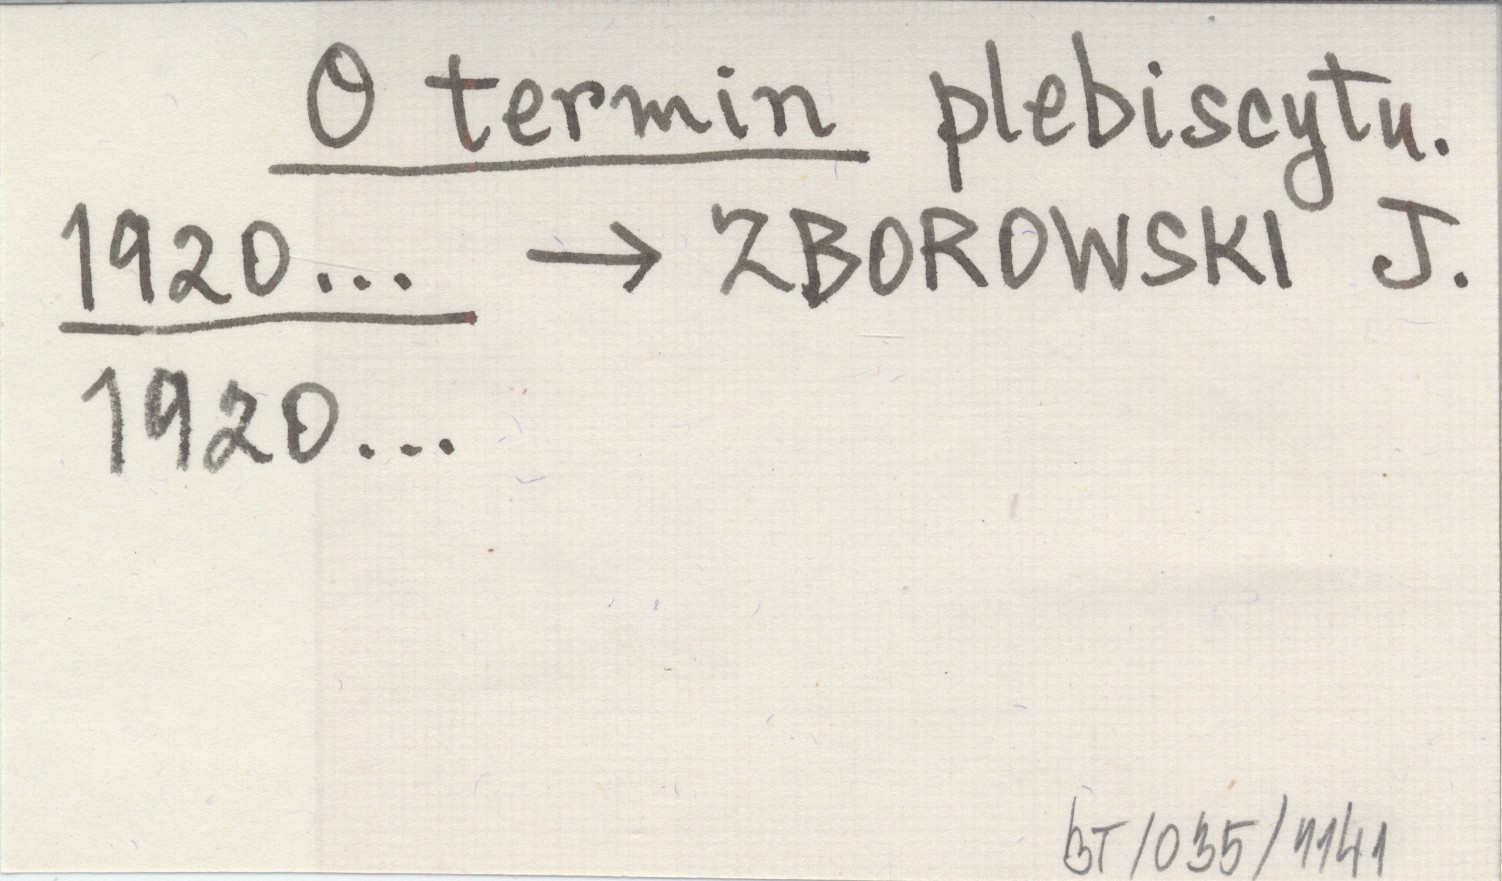 O termin plebiscytu.
1920... → ZBOROWSKI J.
1920...
BT/035/1141